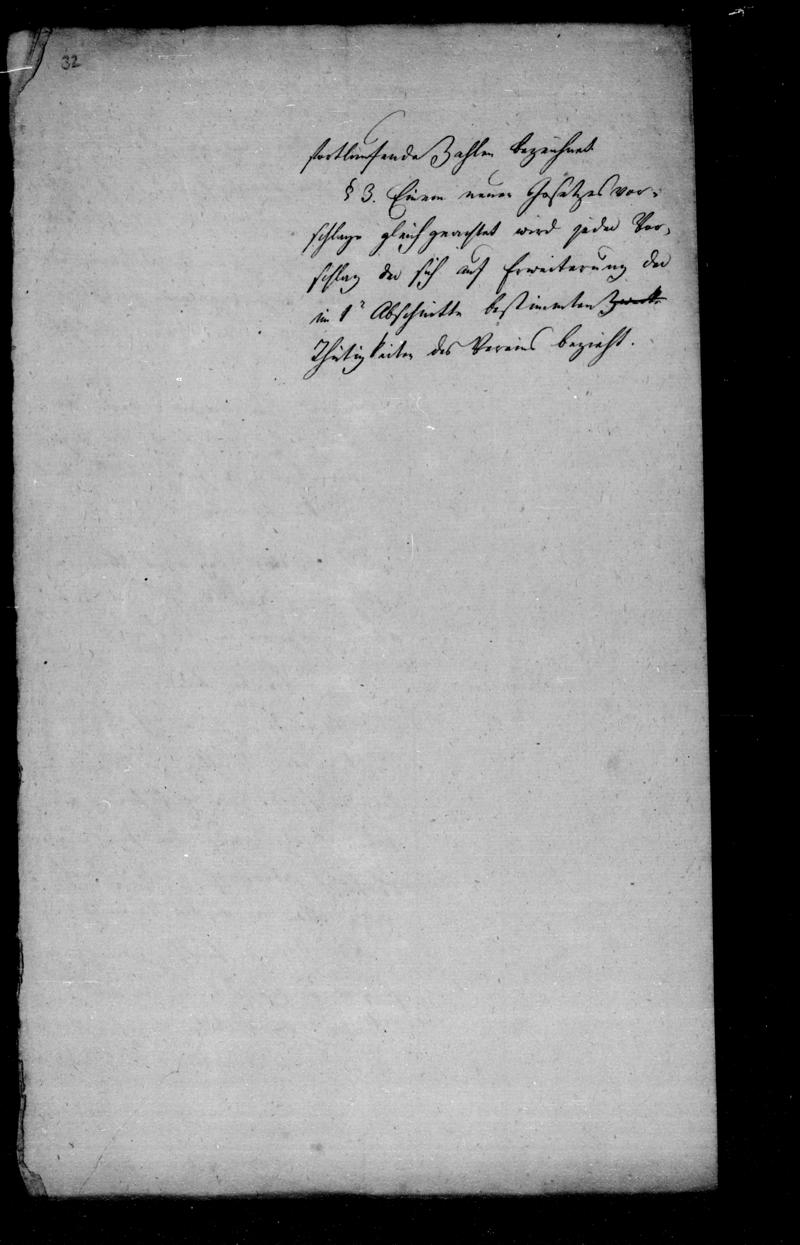 32
fortlaufende Zahlen bezeichnet
§ 3. Einem neuen Gesetzesvor-
schlage gleich geachtet wird jeder Vor-
schlag der sich auf Erweiterung der
im 1r Abschnitte bestimmten Zweck
Thätigkeiten des Vereins bezieht.